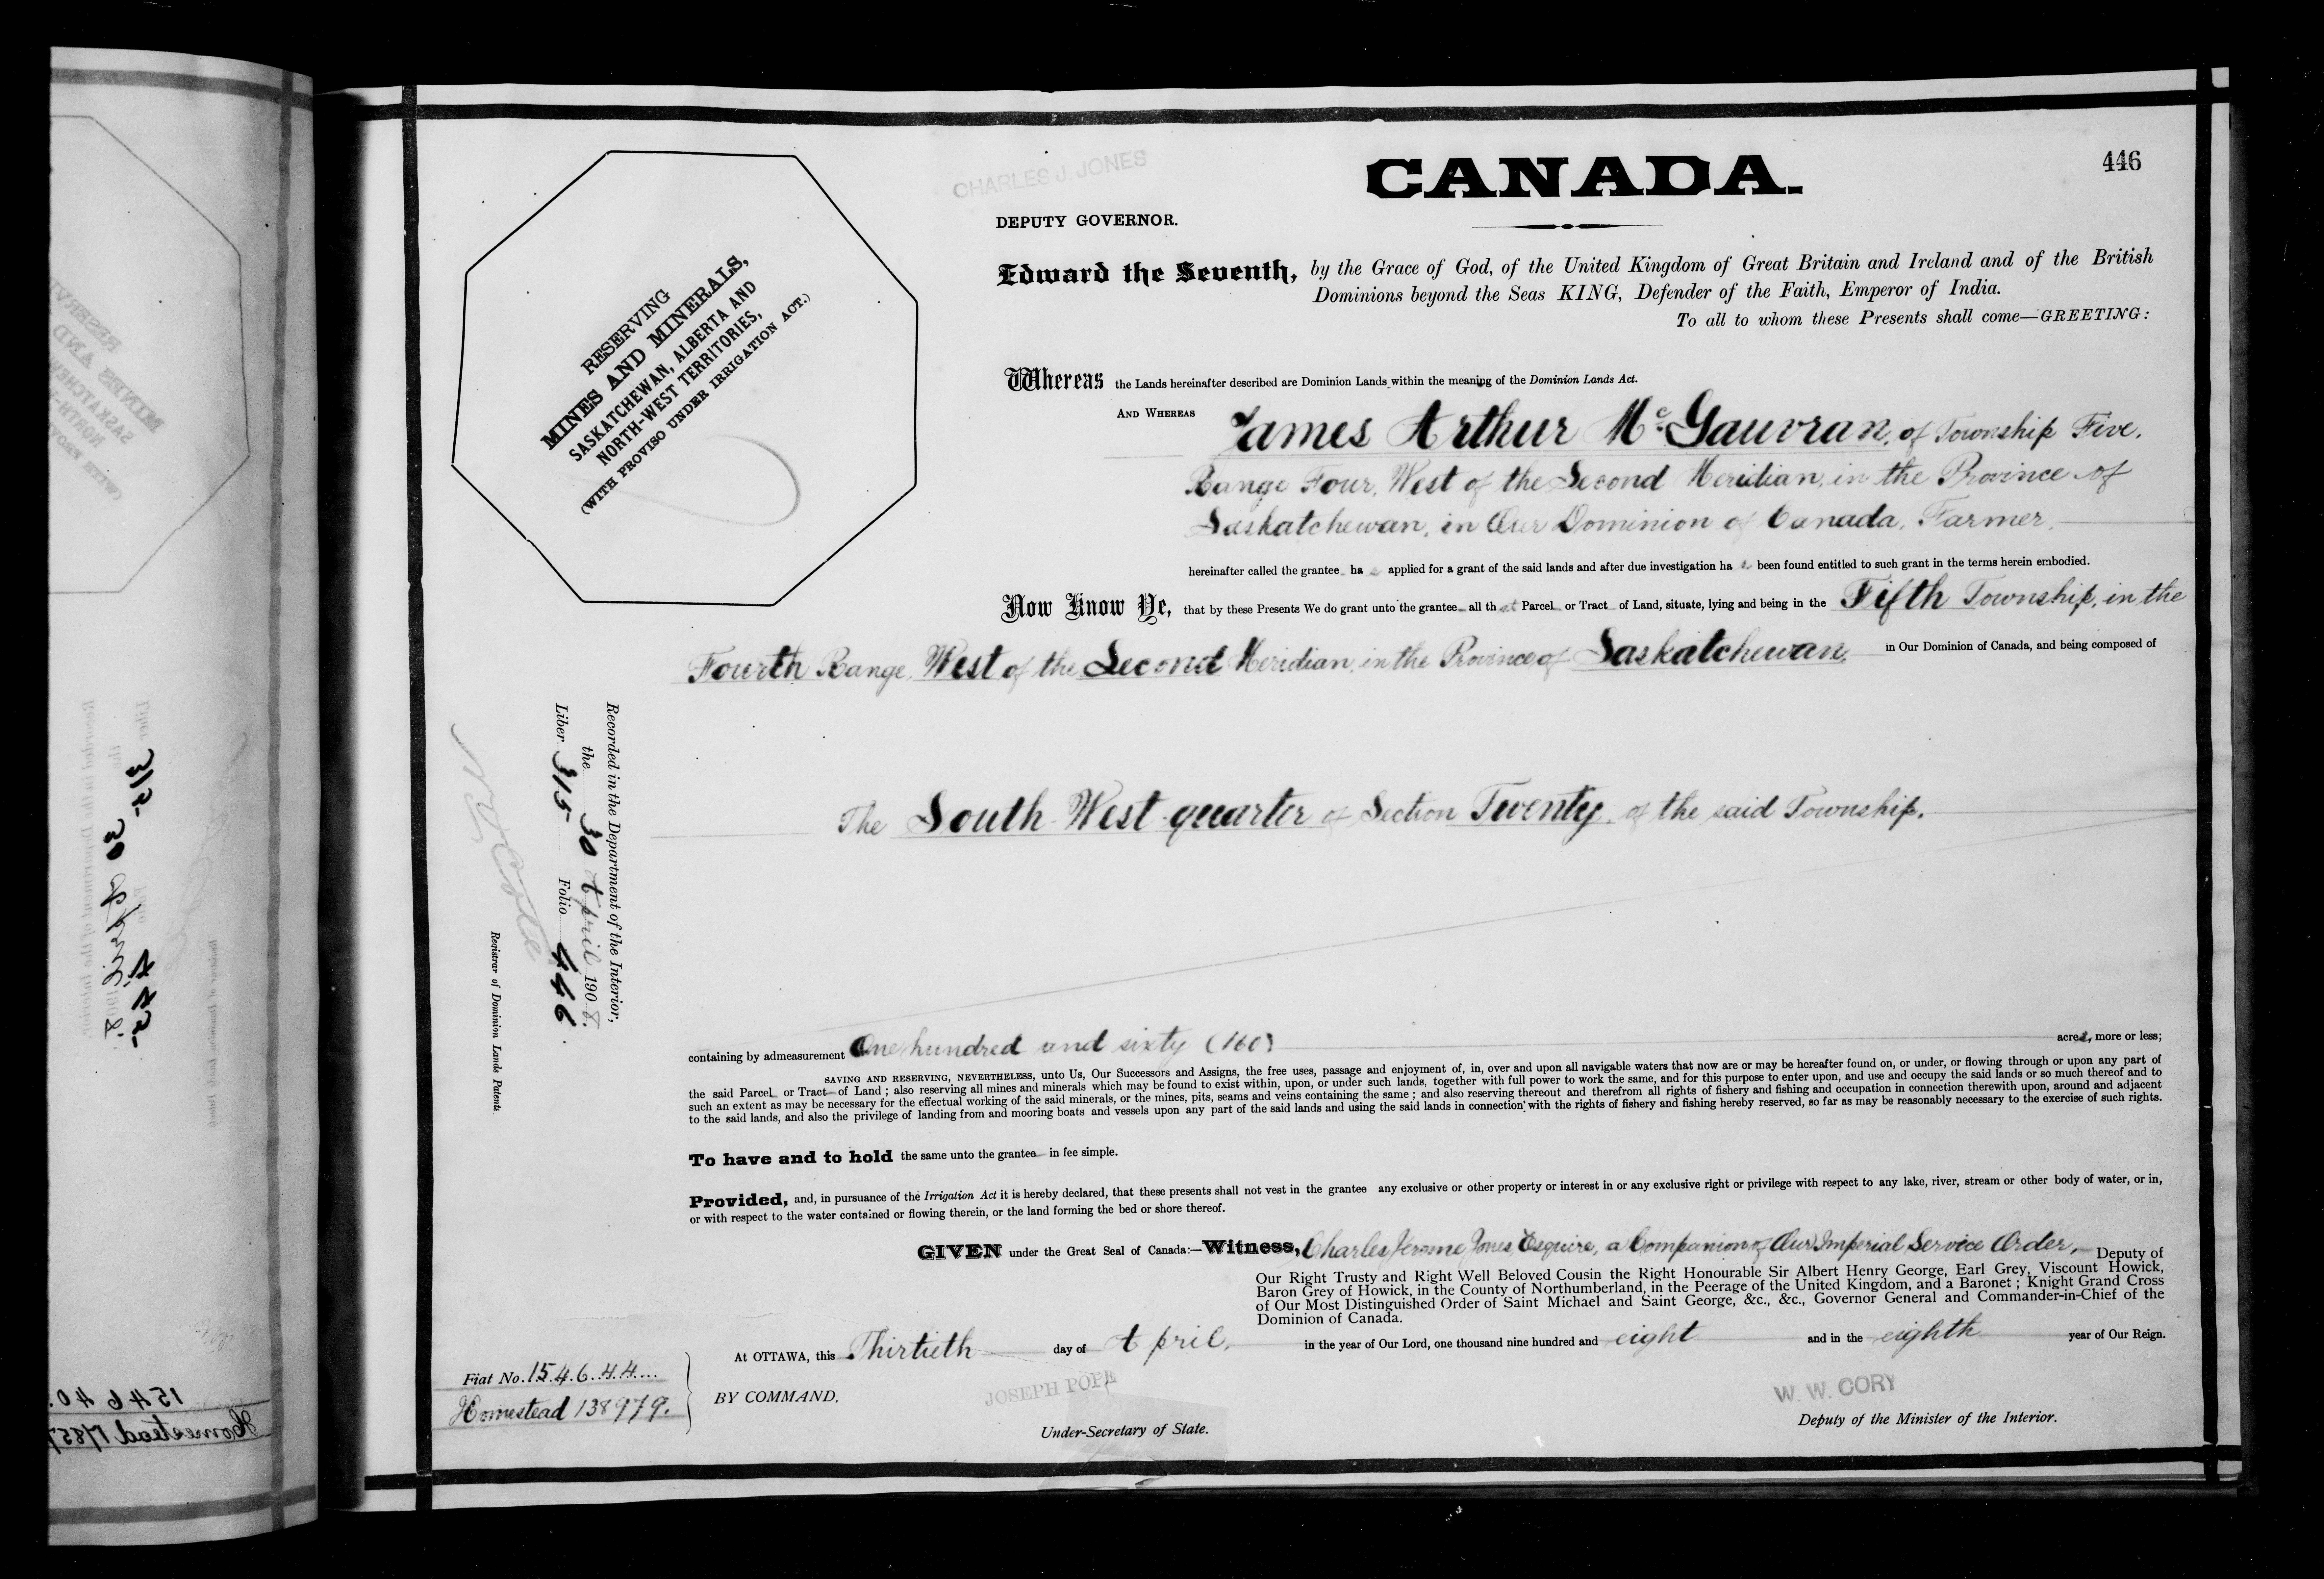 446
CHARLES J. JONES
CANADA.
DEPUTY GOVERNOR.
Edward the Seventh, by the Grace of God, of the United Kingdom of Great Britain and Ireland and of the British
Dominions beyond the Seas KING, Defender of the Faith, Emperor of India.
To all to whom these Presents shall come—GREETING:
RESERVING
MINES AND MINERALS,
SASKATCHEWAN, ALBERTA AND
NORTH-WEST TERRITORIES,
(WITH PROVISO UNDER IRRIGATION ACT.)
Whereas the Lands hereinafter described are Dominion Lands within the meaning of the Dominion Lands Act.
AND WHEREAS James Arthur McGauvran, of Township Five,
Range Four, West of the Second Meridian, in the Province of
Saskatchewan, in Our Dominion of Canada, Farmer,
hereinafter called the grantee has applied for a grant of the said lands and after due investigation has been found entitled to such grant in the terms herein embodied.
Now Know Ye, that by these Presents We do grant unto the grantee all that Parcel or Tract of Land, situate, lying and being in the Fifth Township, in the
Fourth Range, West of the Second Meridian, in the Province of Saskatchewan, in Our Dominion of Canada, and being composed of
The South West quarter of Section Twenty, of the said Township.
Recorded in the Department of the Interior,
the 30 April 1908.
Liber 315 Folio 446
N O Coté
Registrar of Dominion Lands Patents.
containing by admeasurement One hundred and sixty (160) acres, more or less;
SAVING AND RESERVING, NEVERTHELESS, unto Us, Our Successors and Assigns, the free uses, passage and enjoyment of, in, over and upon all navigable waters that now are or may be hereafter found on, or under, or flowing through or upon any part of
the said Parcel or Tract of Land; also reserving all mines and minerals which may be found to exist within, upon, or under such lands, together with full power to work the same, and for this purpose to enter upon, and use and occupy the said lands or so much thereof and to
such an extent as may be necessary for the effectual working of the said minerals, or the mines, pits, seams and veins containing the same; and also reserving thereout and therefrom all rights of fishery and fishing and occupation in connection therewith upon, around and adjacent
to the said lands, and also the privilege of landing from and mooring boats and vessels upon any part of the said lands and using the said lands in connection with the rights of fishery and fishing hereby reserved, so far as may be reasonably necessary to the exercise of such rights.
To have and to hold the same unto the grantee in fee simple.
Provided, and, in pursuance of the Irrigation Act it is hereby declared, that these presents shall not vest in the grantee any exclusive or other property or interest in or any exclusive right or privilege with respect to any lake, river, stream or other body of water, or in,
or with respect to the water contained or flowing therein, or the land forming the bed or shore thereof.
GIVEN under the Great Seal of Canada:—Witness, Charles Jerome Jones, Esquire, a Companion of Our Imperial Service Order, Deputy of
Our Right Trusty and Right Well Beloved Cousin the Right Honourable Sir Albert Henry George, Earl Grey, Viscount Howick,
Baron Grey of Howick, in the County of Northumberland, in the Peerage of the United Kingdom, and a Baronet; Knight Grand Cross
of Our Most Distinguished Order of Saint Michael and Saint George, &c., &c., Governor General and Commander-in-Chief of the
Dominion of Canada.
At OTTAWA, this Thirtieth day of April, in the year of Our Lord, one thousand nine hundred and eight and in the eighth year of Our Reign.
Fiat No. 154644
Homestead 138979.
BY COMMAND,
JOSEPH POPE
Under-Secretary of State.
W. W. CORY
Deputy of the Minister of the Interior.